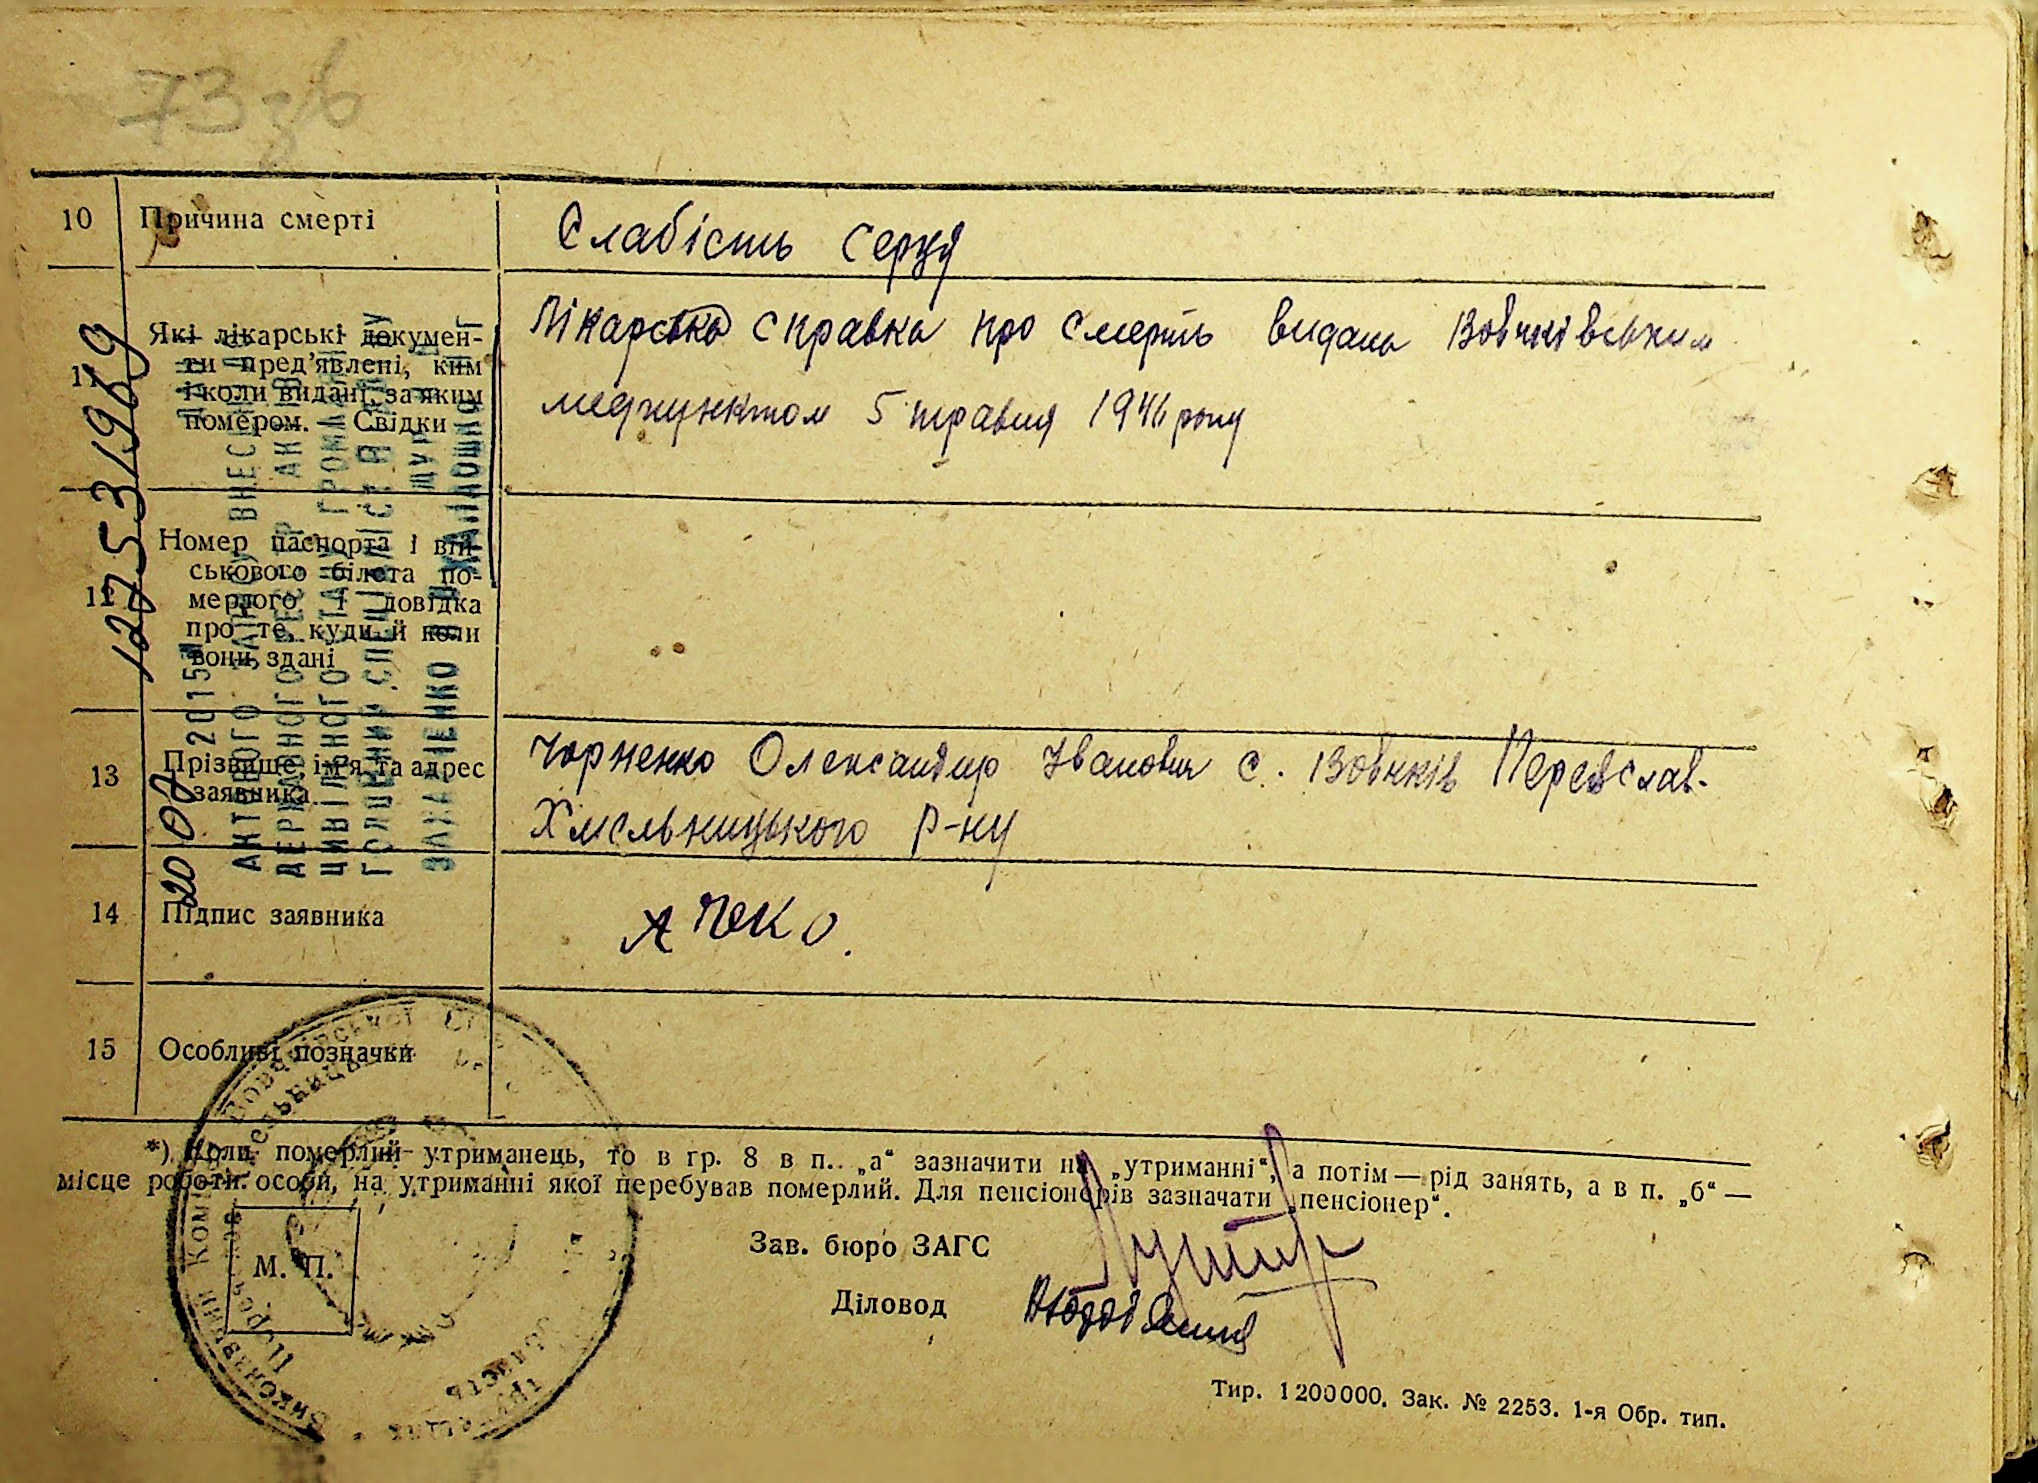 73 зв
10 Причина смерті
Слабість серця
11 Які лікарські докумен-
ти пред'явлені, ким
і коли видані, за яким
помером. Свідки
Лікарська справка про смерть видана Вовчківським
медпунктом 5 травня 1946 року
12 Номер паспорта і вій-
ськового білета по-
мерлого і довідка
про те, куди й коли
вони здані
13 Прізвище, ім'я та адрес
заявника
Чорненко Олександир Іванович с. Вовчків Переяслав-
Хмельницького р-ну
14 Підпис заявника
15 Особливі позначки
*) Коли померлий утриманець, то в гр. 8 в п. „а“ зазначити на „утриманні“, а потім — рід занять, а в п. „б“ —
місце роботи особи, на утриманні якої перебував померлий. Для пенсіонерів зазначати „пенсіонер“.
М. П.
Зав. бюро ЗАГС
Діловод
Тир. 1200000. Зак. № 2253. 1-я Обр. тип.
127531969
2015
АКТОВОГО ЗАПИСУ ВНЕСЕНО
ДЕРЖАВНОГО РЕЄСТР АКТІВ
ЦИВІЛЬНОГО СТАНУ ГРОМАДЯН
ГОЛОВНИЙ СПЕЦІАЛІСТ
Виконавчий Ком